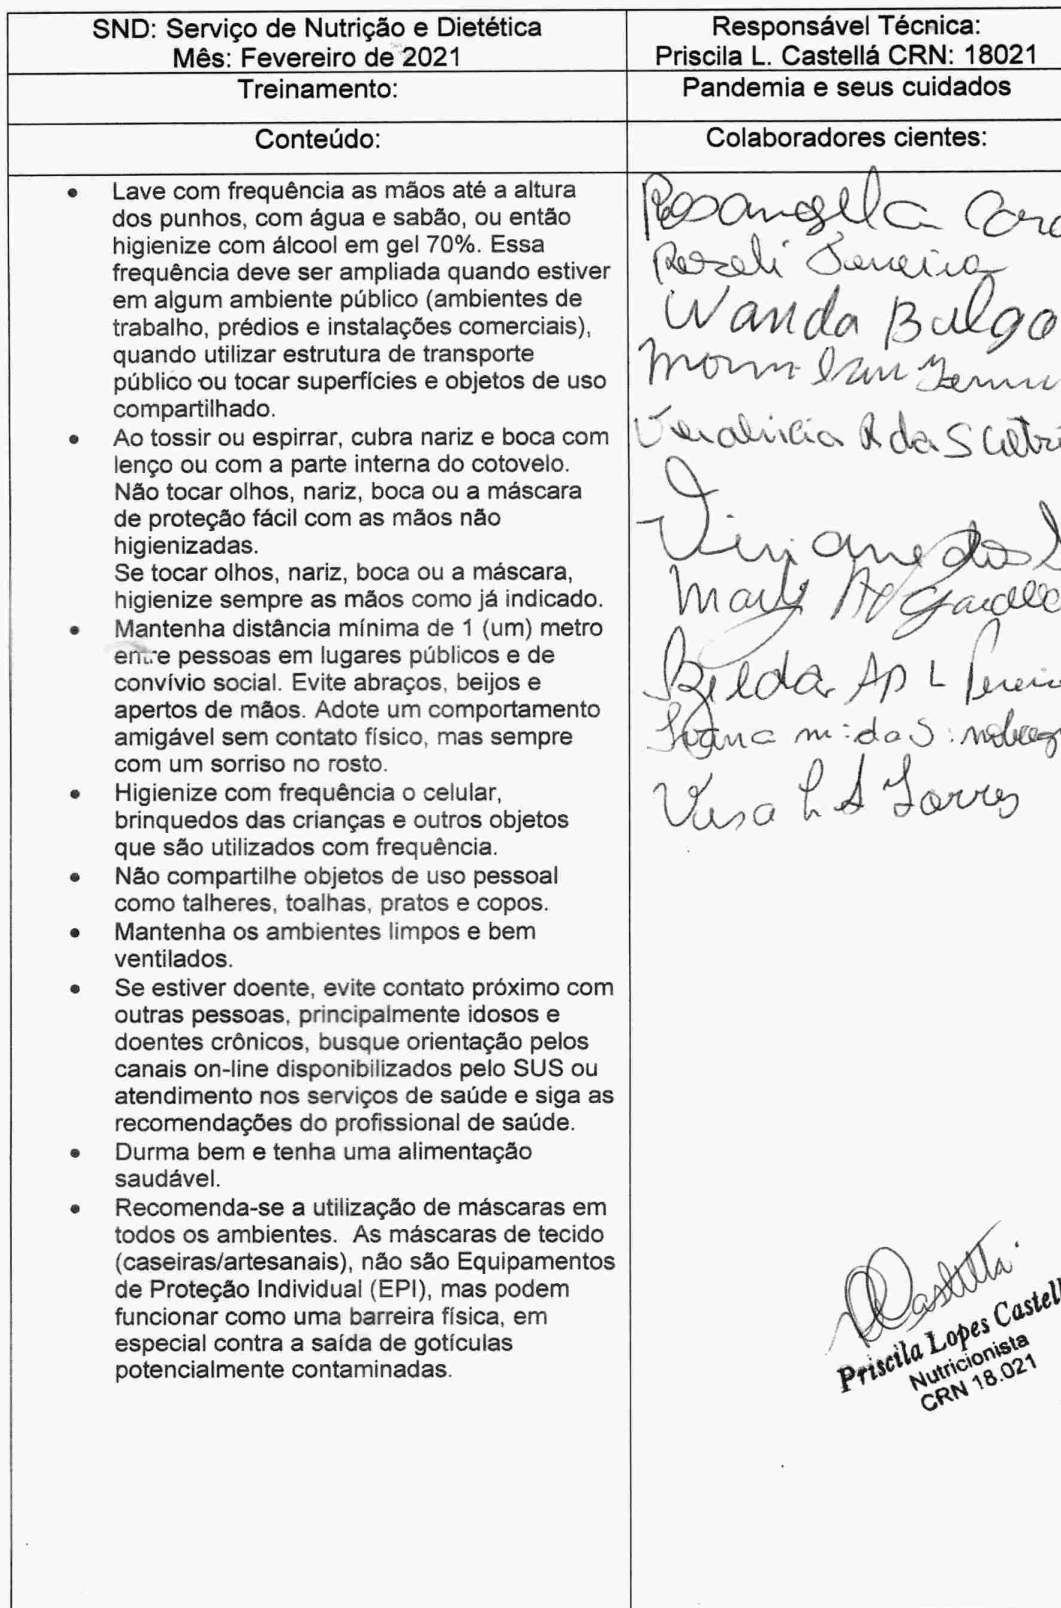 SND: Serviço de Nutrição e Dietética
Mês: Fevereiro de 2021
Responsável Técnica:
Priscila L. Castellá CRN: 18021
Treinamento:
Pandemia e seus cuidados
Conteúdo:
Colaboradores cientes:
• Lave com frequência as mãos até a altura
dos punhos, com água e sabão, ou então
higienize com álcool em gel 70%. Essa
frequência deve ser ampliada quando estiver
em algum ambiente público (ambientes de
trabalho, prédios e instalações comerciais),
quando utilizar estrutura de transporte
público ou tocar superfícies e objetos de uso
compartilhado.
• Ao tossir ou espirrar, cubra nariz e boca com
lenço ou com a parte interna do cotovelo.
Não tocar olhos, nariz, boca ou a máscara
de proteção fácil com as mãos não
higienizadas.
Se tocar olhos, nariz, boca ou a máscara,
higienize sempre as mãos como já indicado.
• Mantenha distância mínima de 1 (um) metro
entre pessoas em lugares públicos e de
convívio social. Evite abraços, beijos e
apertos de mãos. Adote um comportamento
amigável sem contato físico, mas sempre
com um sorriso no rosto.
• Higienize com frequência o celular,
brinquedos das crianças e outros objetos
que são utilizados com frequência.
• Não compartilhe objetos de uso pessoal
como talheres, toalhas, pratos e copos.
• Mantenha os ambientes limpos e bem
ventilados.
• Se estiver doente, evite contato próximo com
outras pessoas, principalmente idosos e
doentes crônicos, busque orientação pelos
canais on-line disponibilizados pelo SUS ou
atendimento nos serviços de saúde e siga as
recomendações do profissional de saúde.
• Durma bem e tenha uma alimentação
saudável.
• Recomenda-se a utilização de máscaras em
todos os ambientes. As máscaras de tecido
(caseiras/artesanais), não são Equipamentos
de Proteção Individual (EPI), mas podem
funcionar como uma barreira física, em
especial contra a saída de gotículas
potencialmente contaminadas.
Rosangella
Roseli Ferreira
Wanda
da S
Viviane dos
Gilda Ap L
m. da S.
L S Torres
Priscila Lopes Castell
Nutricionista
CRN 18.021